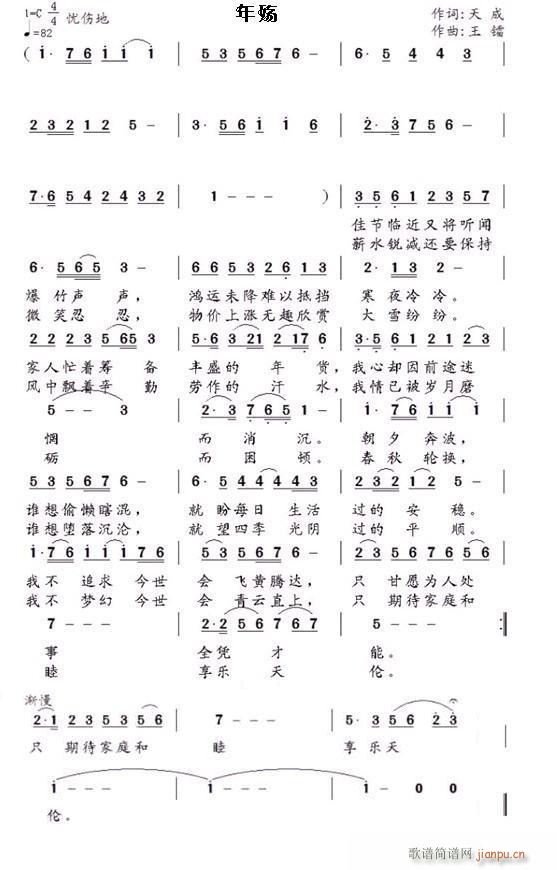 年殇
1=C 4/4 忧伤地 作词:天成
♩=82 作曲:王镭
( i· 7 6 i i i | 5 3 5 6 7 6 | 6· 5 4 4 3
2 3 2 1 2 5 - | 3· 5 6 i i 6 | 2· 3 7 5 6 -
7· 6 5 4 2 4 3 2 | 1 - - - ) | 3 5 6 1 2 3 5 7
佳节临近又将听闻
薪水锐减还要保持
6· 5 6 5 3 - | 6 6 5 3 2 6 1 3 | 2· 1 3 2 -
爆竹声声, 鸿运未降难以抵挡 寒夜冷冷。
微笑忍忍, 物价上涨无趣欣赏 大雪纷纷。
2 2 2 2 3 5 6 5 3 | 5· 6 3 2 1 2 1 7 6 | 3· 5 6 1 2 1 2 3
家人忙着筹备 丰盛的年货, 我心却因前途迷
风中飘着辛勤 劳作的汗水, 我情已被岁月磨
5 - - 3 | 2· 3 7 6 5 - | i· 7 6 i i i
惘 而消沉。 朝夕奔波,
砺 而困顿。 春秋轮换,
5 3 5 3 5 6 7 6 | 6· 5 4 4 4 4 3 | 2 3 2 1 2 5 -
谁想偷懒瞎混, 就盼每日生活 过的安稳。
谁想堕落沉沦, 就望四季光阴 过的平顺。
i· 7 6 i i i 7 6 | 5 3 5 6 7 6 | 2 3 5 6 7 6 5 6
我不追求今世 会飞黄腾达, 只甘愿为人处
我不梦幻今世 会青云直上, 只期待家庭和
7 - - - | 2· 2 5 6 7 6 | 5 - - - :|
事 全凭才能。
睦 享乐天伦。
渐慢
2· 1 2 3 5 3 5 6 | 7 - - - | 5· 3 5 6 2· 3
只期待家庭和 睦 享乐天
i - - - | i - - - | i - 0 0
伦。
歌谱简谱网
jianpu.cn